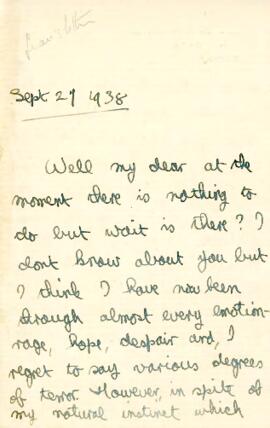 Sept 27 1938
Well my dear at the
moment there is nothing to
do but wait is there? I
dont know about you but
I think I have now been
through almost every emotion-
rage, hope, despair and, I
regret to say various degrees
of terror. However, in spite of
my natural instinct which